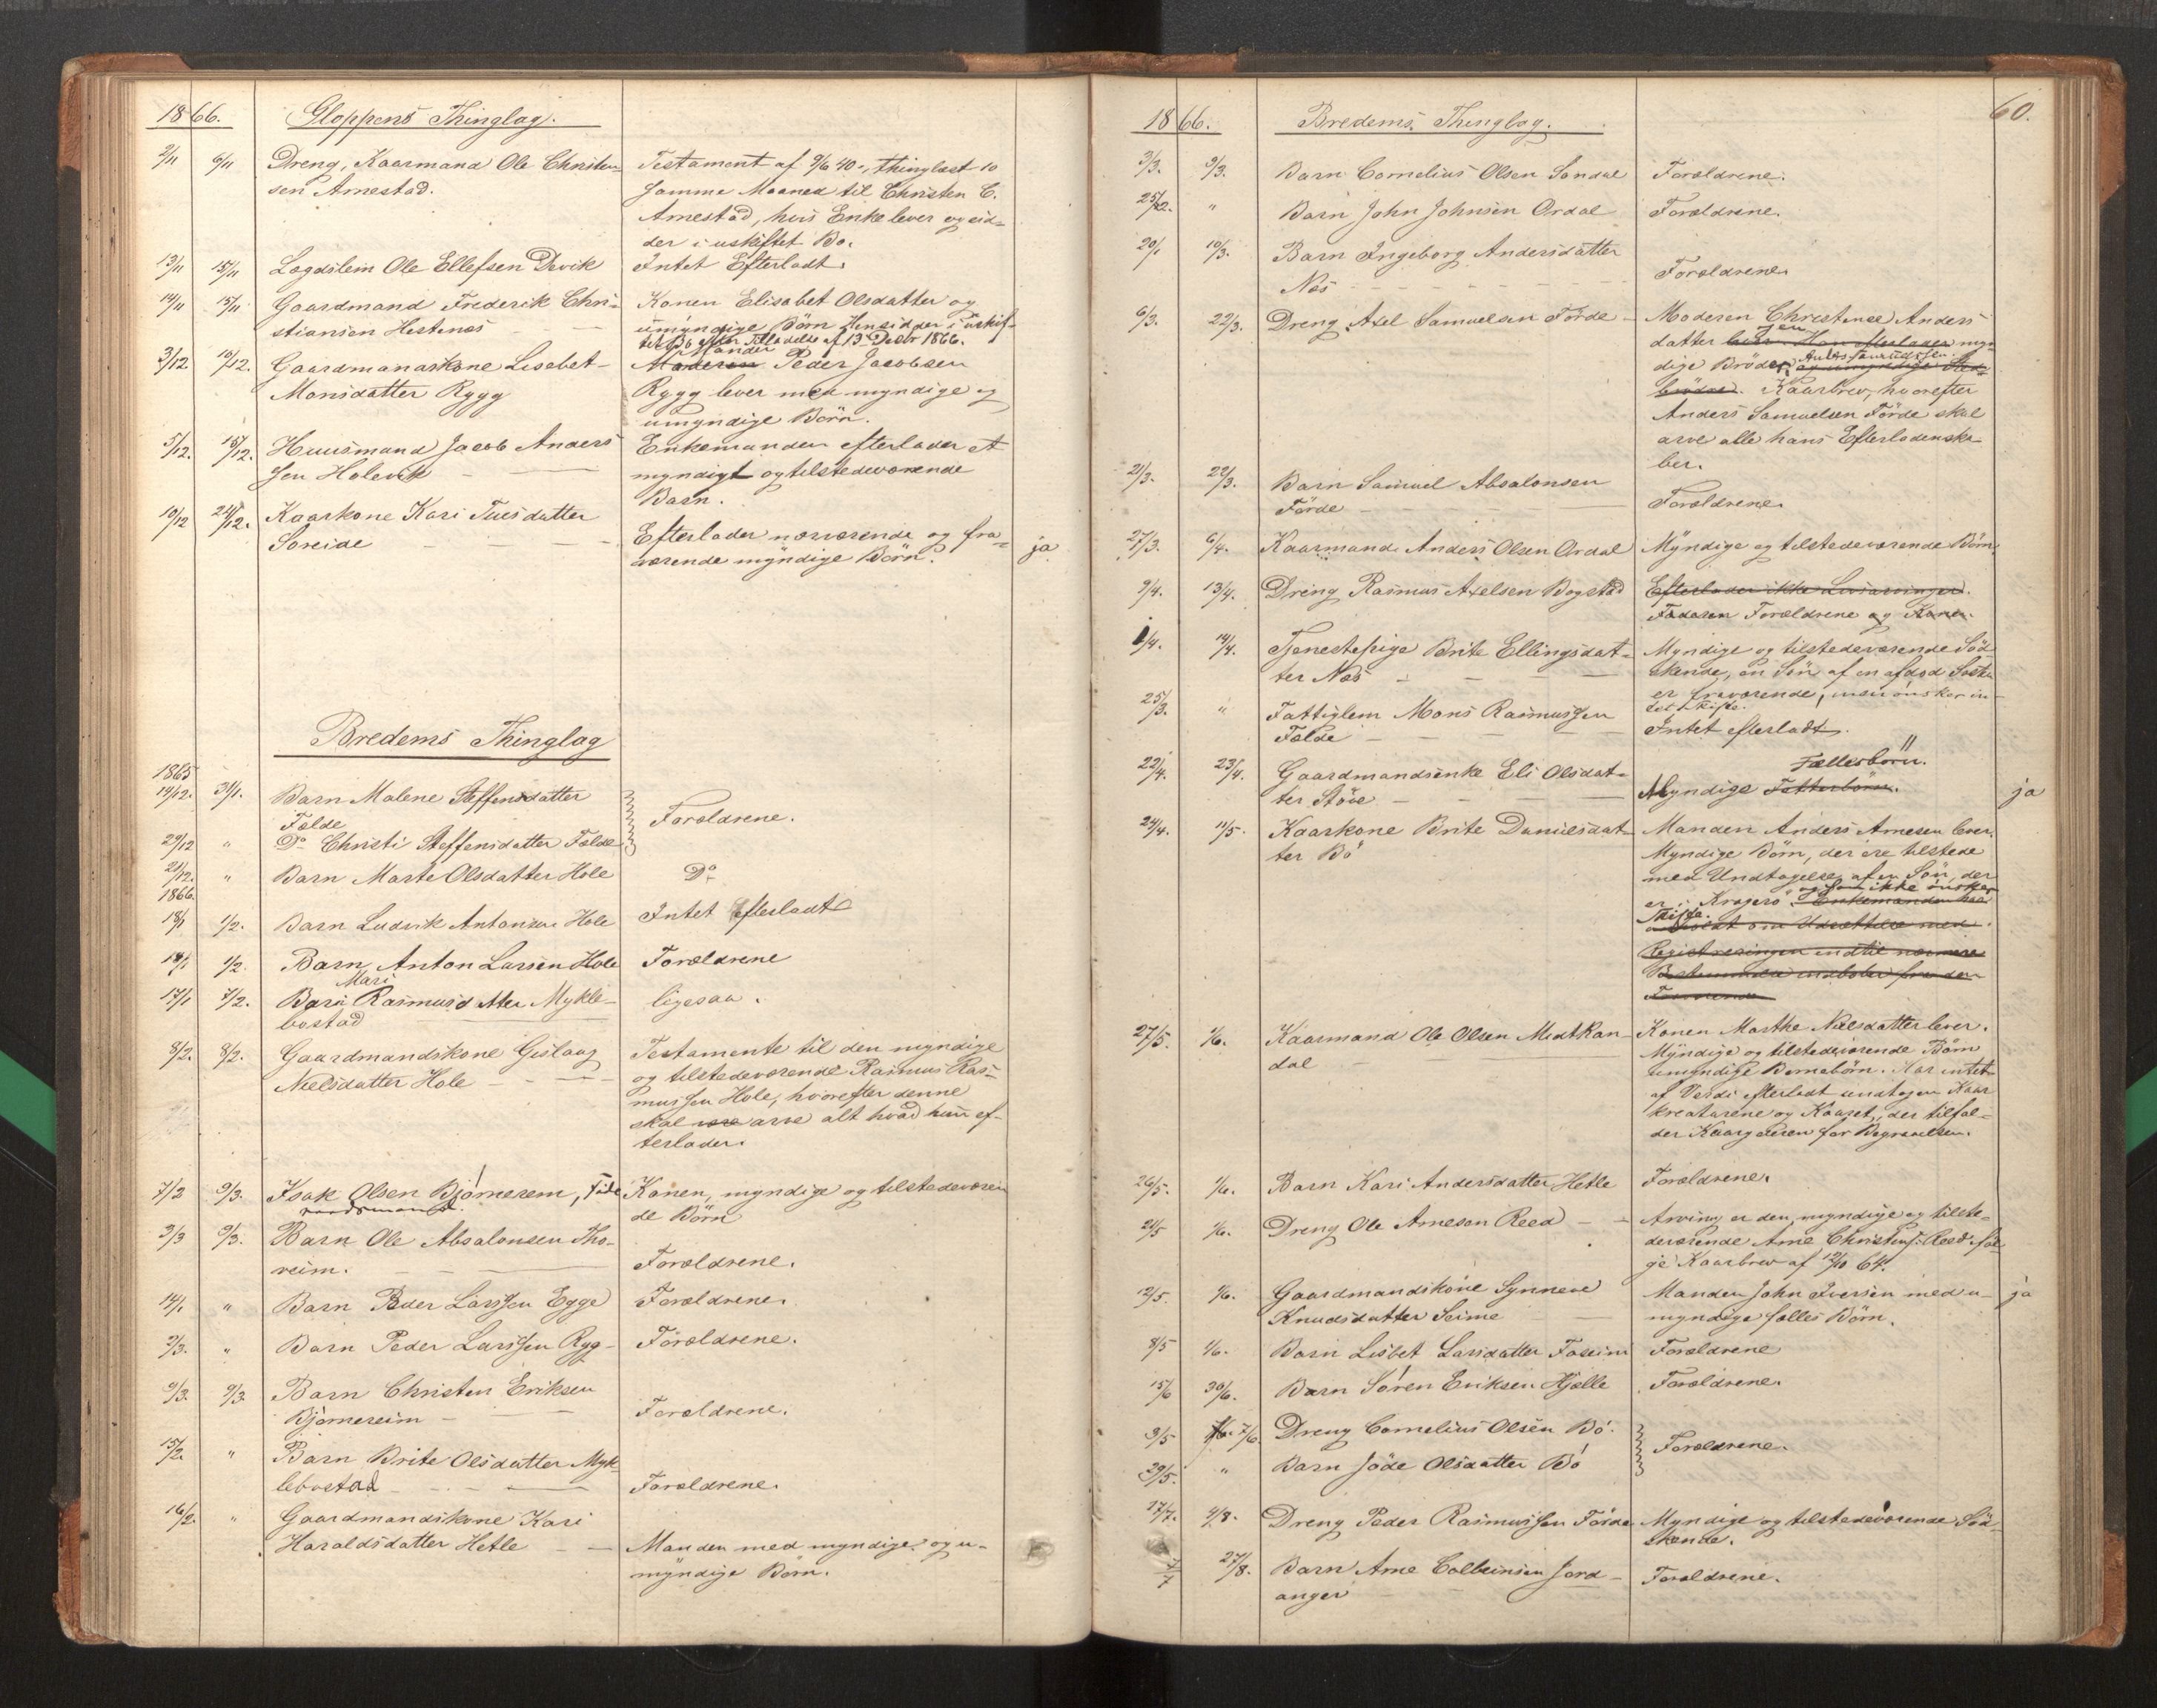 1866. Gloppens Thinglag.
2/11 6/11 Dreng, Kaarmand Ole Christen- Testament af 9/6 40, thinglæst 10
sen Arnestad. samme Maaned til Christen C.
Arnestad, hvis Enke lever og sid-
der i uskiftet Bo.
13/11 15/11 Lægdslem Ole Ellefsen Devik Intet Efterladt.
14/11 15/11 Gaardmand Frederik Chri- Konen Elisabet Olsdatter og
stiansen Hestenæs umyndige Börn Hensidder i uskif-
tet Bo efter Tilladelse af 13 Decbr 1866.
Manden
3/12 10/12. Gaardmandskone Lisebet Moderen Peder Jacobsen
Monsdatter Rygg Rygg lever med myndige og
umyndige Börn.
5/12. 15/12. Huusmand Jacob Anders Enkemanden efterlader et
sen Holevik myndigt og tilstedeværende
Barn.
10/12 24/12. Kaarkone Kari Tuesdatter
Soreide Efterlader nærværende og fra- ja
værende myndige Börn.
Bredems Thinglag
1865
19/12. 31/1. Barn Malene Steffensdatter
Folde Forældrene.
29/12 " Do Christi Steffensdatter Folde
21/12. " Barn Marte Olsdatter Hole Do
1866.
18/1 1/2. Barn Ludvik Antonsen Hole Intet efterladt
18/1 1/2. Barn Anton Larsen Hole Forældrene
Mari
17/1 7/2. Barn Rasmusdatter Mykle- ligesaa.
bostad
8/2. 8/2. Gaardmandskone Gislaug Testamente til den myndige
Nielsdatter Hole og tilstedeværende Rasmus Ras-
mussen Hole, hvorefter denne
skal arve alt hvad hun ef-
terlader.
7/2 9/3. Isak Olsen Björnerem, Konen, myndige og tilstedeværen
de Börn
3/3 9/3. Barn Ole Absalonsen Tho-
reim. Forældrene.
14/1 " Barn Peder Larssen Egge Forældrene.
2/3. " Barn Peder Larssen Ryg- Forældrene.
9/3. 9/3. Barn Christen Eriksen
Björnereim Forældrene.
15/2. " Barn Brite Olsdatter Myk-
lebostad Forældrene.
16/2. " Gaardmandskone Kari
Haraldsdatter Hetle Manden med myndige og u-
myndige Börn.
60.
1866. Bredems Thinglag.
3/3. 9/3. Barn Cornelius Olsen Sandal Forældrene.
25/2. " Barn John Johnsen Ordal Forældrene.
20/1 10/3. Barn Ingeborg Andersdatter
Nos Forældrene.
6/3. 22/3. Dreng Axel Samuelsen Förde Moderen Christense Anders
datter lever Han efterlader myn
dige Brödre, og umyndige Sted-
brödre. Kaarbrev, hvorefter
Anders Samuelsen Förde skal
arve alle hans Efterladenska-
ber.
21/3. 22/3. Barn Samuel Absalonsen
Förde Forældrene.
27/3. 6/4. Kaarmand Anders Olsen Ordal Myndige og tilstedeværende Börn.
9/4. 13/4. Dreng Rasmus Axelsen Bogstad Efterlader ikke Livsarvinger.
Faderen Forældrene og Konen.
1/4. 14/4. Tjenestepige Brite Ellingsdat- Myndige og tilstedeværende Söd-
ter Nos skende, en Sön af en afdød Söster
er fraværende, men önsker in-
tet Skifte.
25/3. " Fattiglem Mons Rasmussen
Folde Intet efterladt.
22/4. 23/4. Gaardmandsenke Eli Olsdat- Fællesbörn.
ter Stöve Myndige Fatterbörn. ja
24/4. 11/5. Kaarkone Brite Danielsdat- Manden Anders Arnesen lever.
ter Bö Myndige Börn, der ere tilstede
med Undtagelse af en Sön, der
og som ikke önsker
er i Kragerö. Enkemanden har
Skifte. om Udsættelse med
Registreringen indtil nærmere
27/5. 1/6. Kaarmand Ole Olsen MedtKan- Konen Marthe Nielsdatter lever.
dal Myndige og tilstedeværende Börn
umyndige Börnebörn. Har intet
af Værdi efterladt undtagen Kaar
kreaturene og Kaaret, der tilfal-
der Kaargiveren for Begravelsen.
26/5. 1/6. Barn Kari Andersdatter Hetle Forældrene.
21/5 1/6. Dreng Ole Arnesen Reed Arving er den myndige og tilste-
deværende Arne Christens. Reed föl-
ge Kaarbrev af 12/10 64.
12/5. 1/6. Gaardmandskone Synneve Manden John Iversen med u- ja
Knudsdatter Seime myndige fælles Börn.
8/5 4/6. Barn Lisbet Larsdatter Foseim Forældrene
15/6 30/6. Barn Sören Eriksen Hjelle Forældrene.
3/5 7/6. Dreng Cornelius Olsen Bö.
Forældrene.
29/5. " Barn Jöde Olsdatter Bö
17/7. 4/8. Dreng Peder Rasmussen Förde Myndige og tilstedeværende Söd-
skende.
7/7 27/8. Barn Arne Colbeinsen Jord- Forældrene.
anger